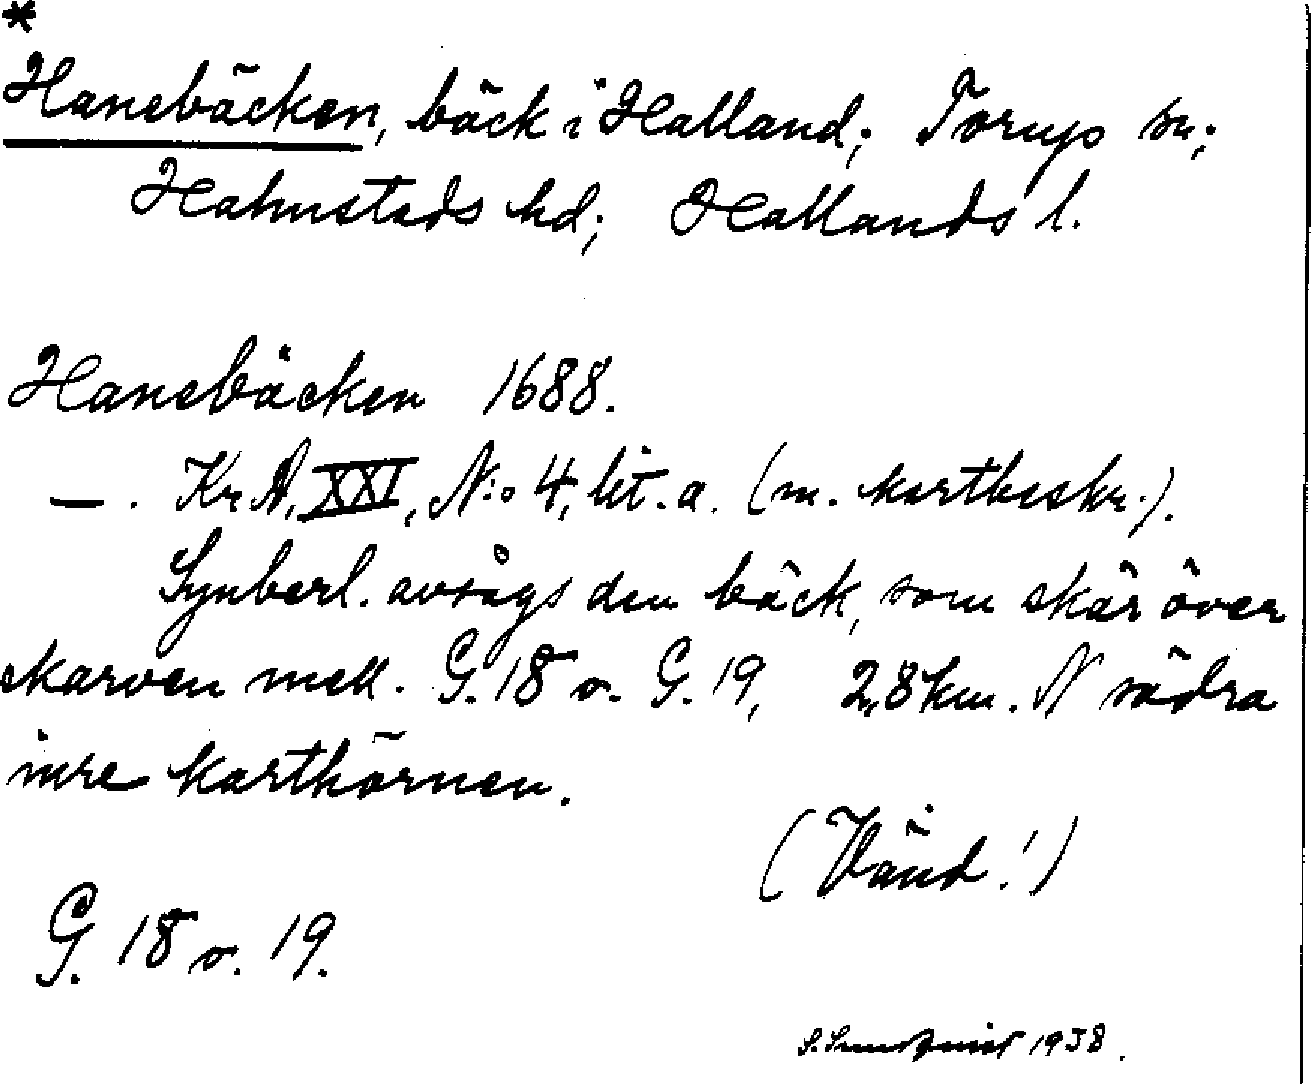 *
Hanebäcken, bäck i Halland; Torups sn;
Halmstads hd; Hallands l.
Hanebäcken 1688.
—. Kr.A, XXI, N:o 4, lit. a. (m. kartbeskr.).
Synberl. avsågs den bäck, som skär över
skarven mell. G. 18 o. G. 19, 2,8 km. N södra
inre karthörnen.
(Vänd!)
G. 18 o. 19.
S. 1938.